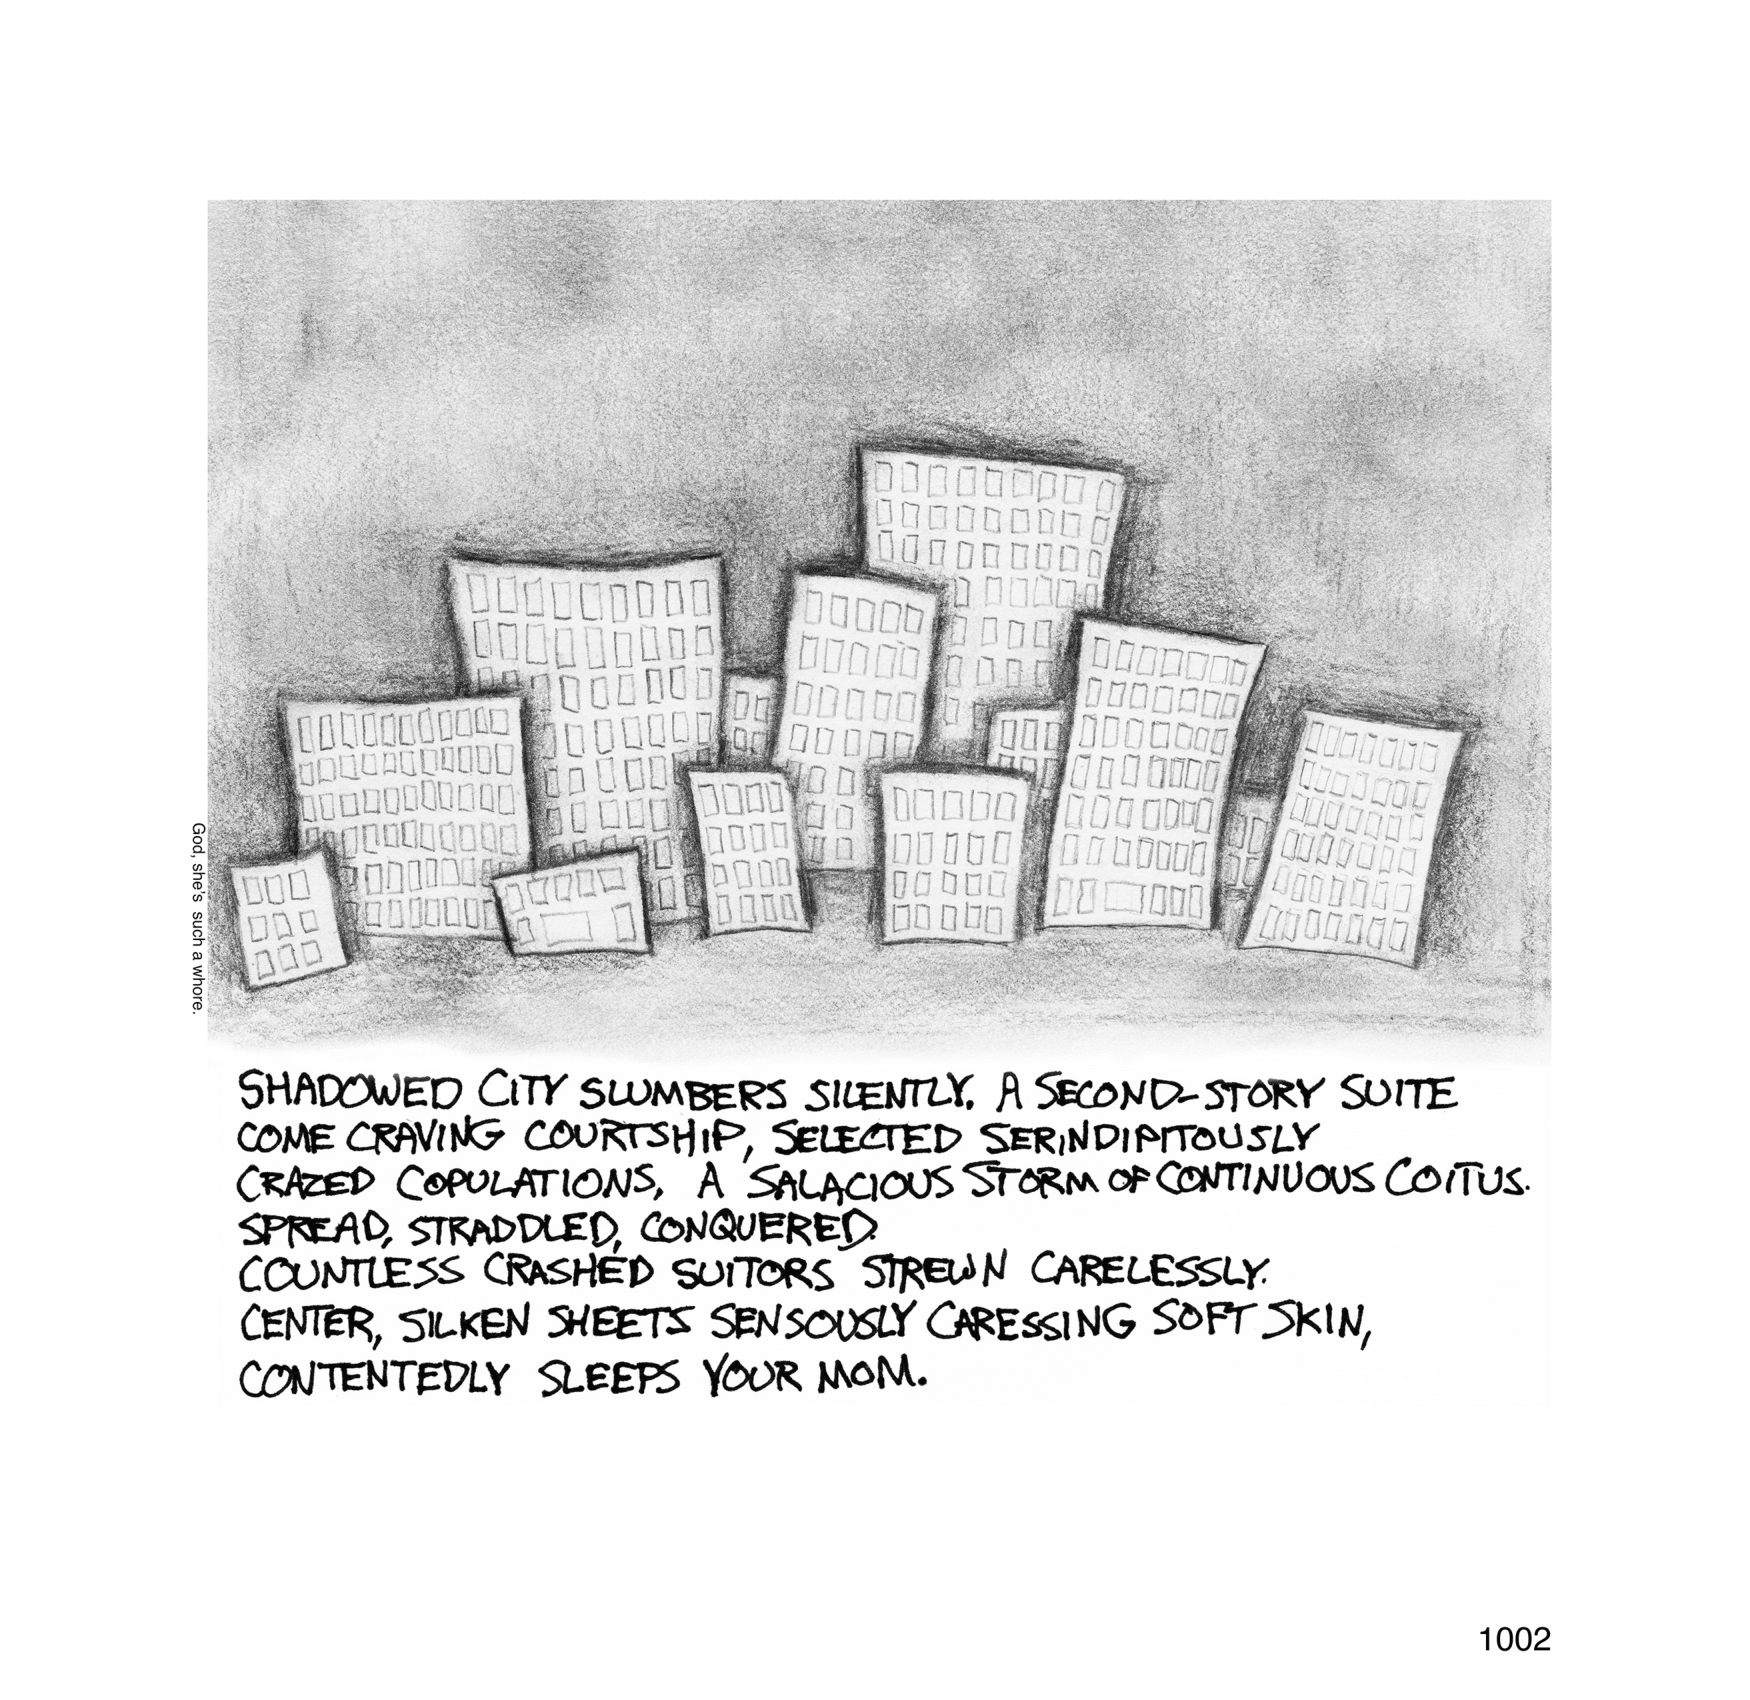 God, she's such a whore.
SHADOWED CITY SLUMBERS SILENTLY. A SECOND-STORY SUITE
COME CRAVING COURTSHIP, SELECTED SERINDIPITOUSLY
CRAZED COPULATIONS, A SALACIOUS STORM OF CONTINUOUS COITUS.
SPREAD, STRADDLED, CONQUERED.
COUNTLESS CRASHED SUITORS STREWN CARELESSLY.
CENTER, SILKEN SHEETS SENSOUSLY CARESSING SOFT SKIN,
CONTENTEDLY SLEEPS YOUR MOM.
1002